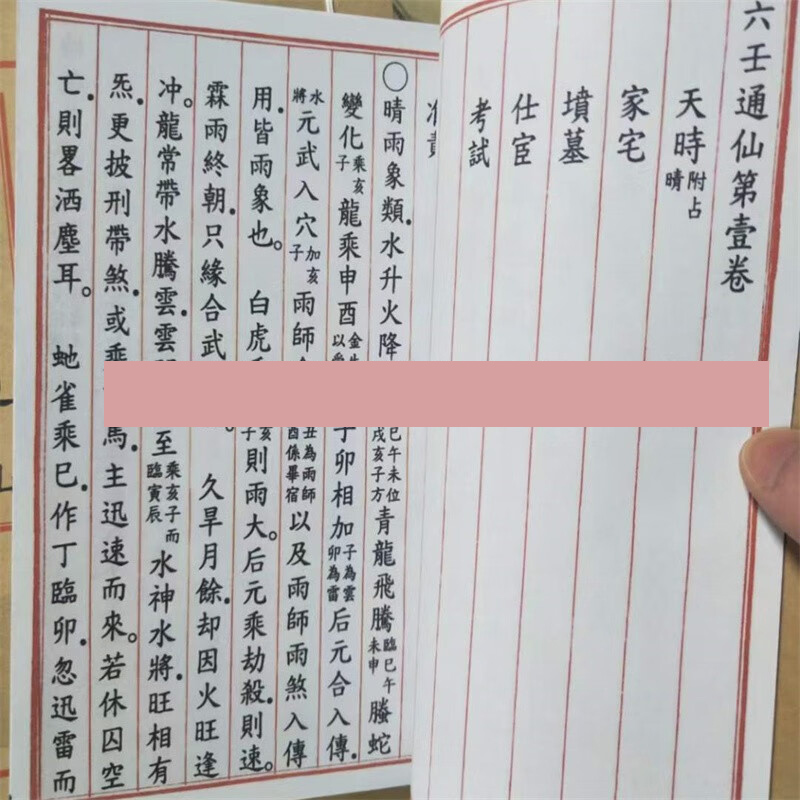 六壬通仙第壹卷
天時附占晴
家宅
墳墓
仕宦
考試
○晴雨象類.水升火降巳午未位戌亥子方青龍飛騰臨巳午未申螣蛇
變化乘亥子龍乘申酉金以卯相加子為雲卯為雷后元合入傳.
水將元武入穴加亥子雨師丑為雨師酉係畢宿以及雨師雨煞入傳
用.皆雨象也。白虎亥子則雨大。后元乘劫殺.則速。
霖雨終朝.只緣合武。久旱月餘.却因火旺逢
冲。龍常帶水騰雲.雲至乘亥子而臨寅辰水神水將.旺相有
炁.更披刑帶煞.或乘馬.主迅速而來。若休囚空
亡.則畧洒塵耳。虵雀乘巳.作丁臨卯.忽迅雷而